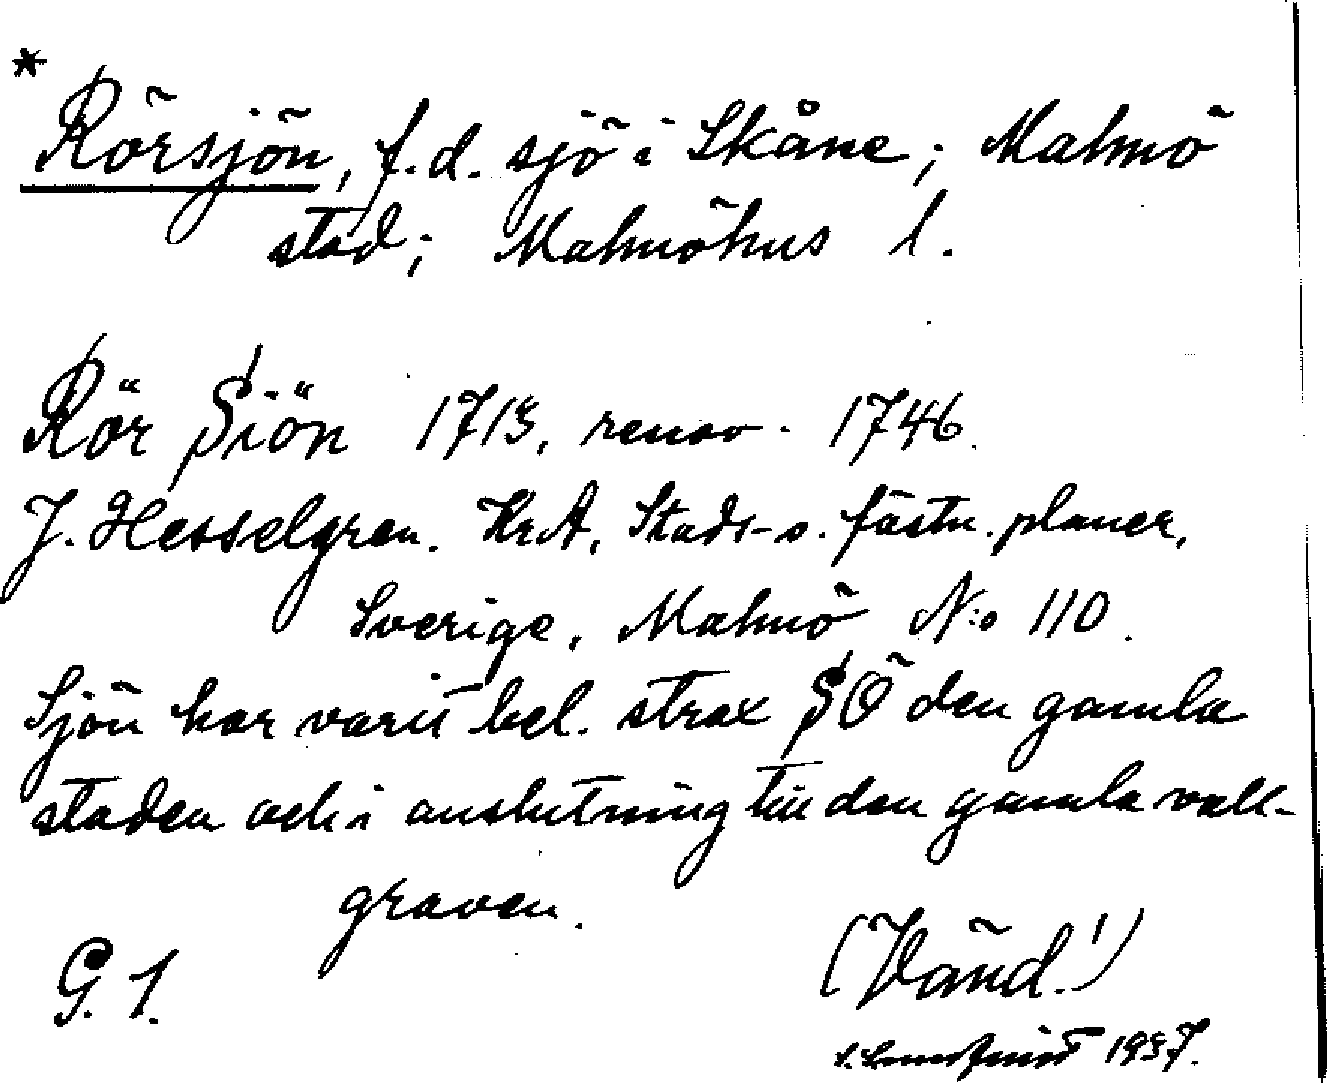 * Rörsjön, f.d. sjö i Skåne; Malmö
stad; Malmöhus l.
Rör Siön 1713, renov. 1746.
J. Hesselgren. KrA, Stads- o. fästn. planer,
Sverige, Malmö N:o 110.
Sjön har varit bel. strax SÖ den gamla
staden och i anslutning till den gamla vall-
graven.
G. 1.
(Vänd!)
1937.